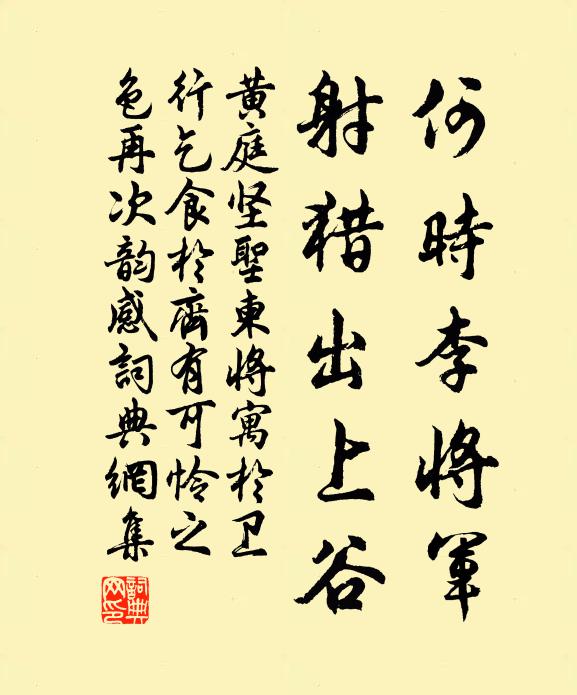 何時李將軍
射猎出上谷
黄庭坚聖東將寓於卫
行乞食於齊有可怜之
色再次韵感詞典網集
詞典网印